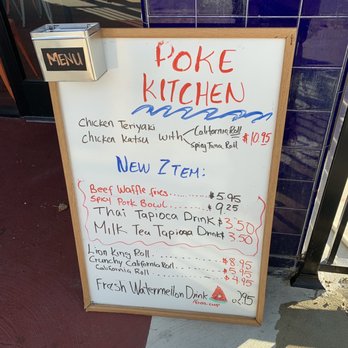 MENU
POKE
KITCHEN
Chicken Teriyaki
Chicken Katsu with California Roll $10.95
Spicy Tuna Roll
NEW ITEM:
Beef Waffle fries........ $5.95
Spicy Pork Bowl........ $9.25
Thai Tapioca Drink $3.50
Milk Tea Tapioca Drink $3.50
Lion King Roll........ $8.95
Crunchy California Roll........ $5.95
California Roll........ $4.95
Fresh Watermellon Drink